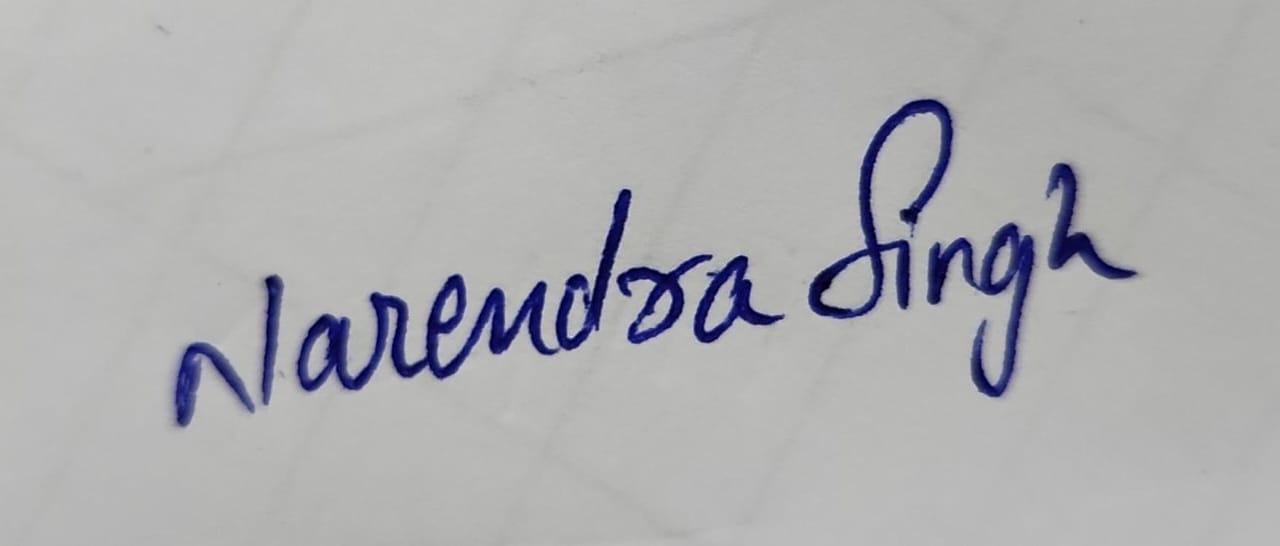 Narendra Singh